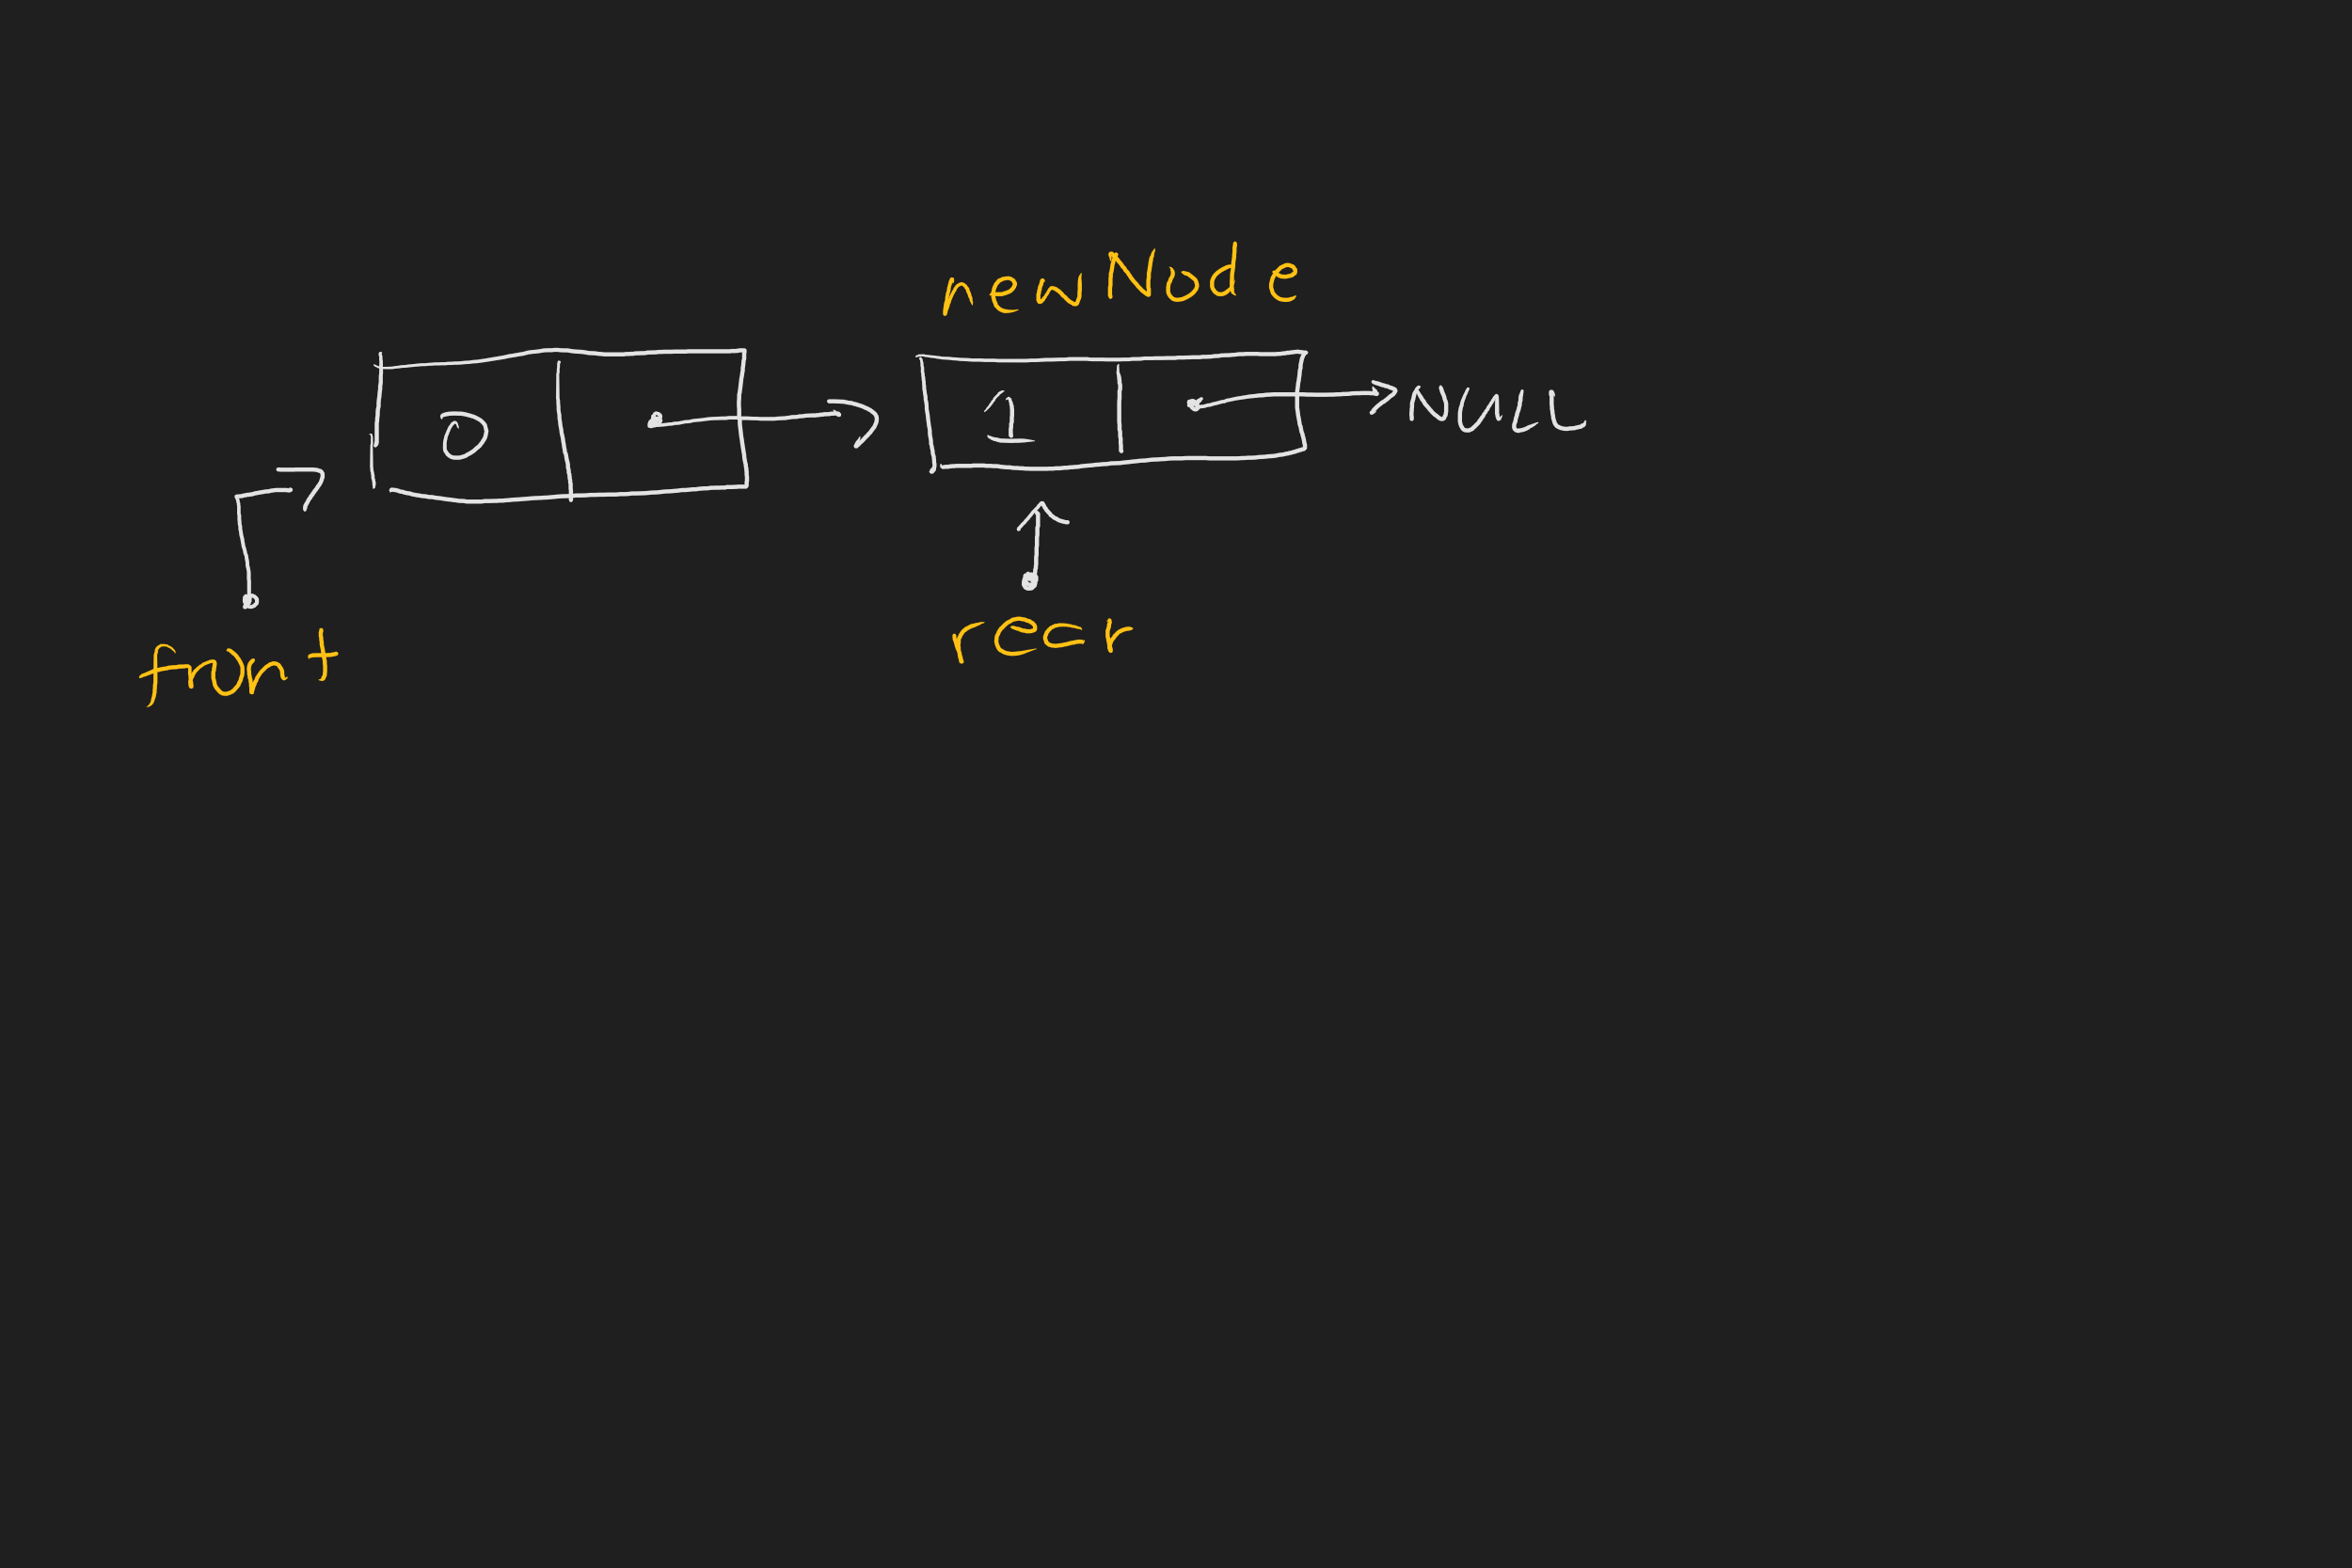 newNode
0
1
NULL
front
rear